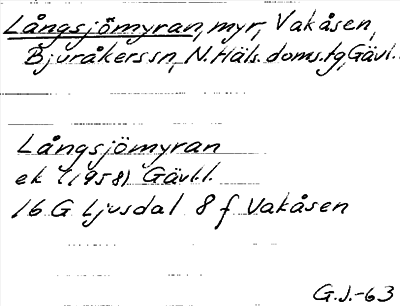 Långsjömyran, myr, Vakåsen,
Bjuråkerssn, N. Häls. doms.tg, Gävl.l.
Långsjömyran
ek (1958) Gävl.l.
16 G Ljusdal 8 f Vakåsen
G.J.-63